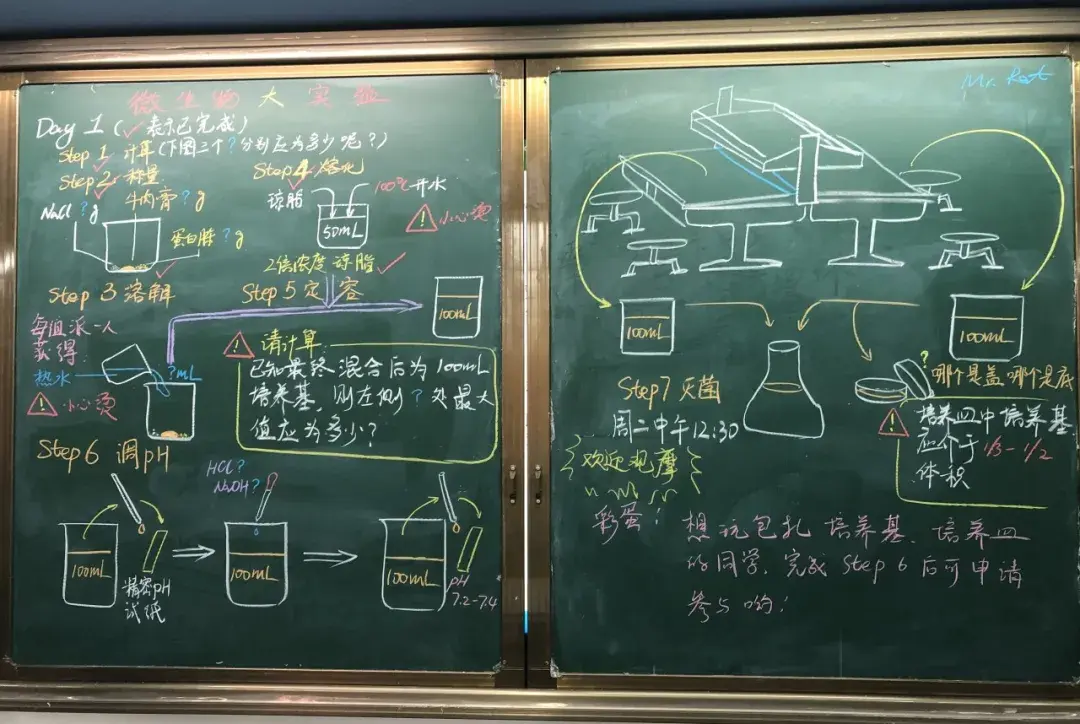 微生物大实验
Day 1 (✓表示已完成)
Step 1 计算(下图三个?分别应为多少呢?)
Step 2 称量
NaCl ?g
牛肉膏 ?g
蛋白胨 ?g
Step 3 溶解
每组派一人
获得:
热水
?mL
小心烫
Step 4 熔化
琼脂
100℃开水
50mL
小心烫
2倍浓度琼脂
Step 5 定容
100mL
请计算:
已知最终混合后为100mL
培养基,则左侧?处最大
值应为多少?
Step 6 调pH
100mL
精密pH
试纸
HCl?
NaOH?
100mL
100mL
pH
7.2-7.4
100mL
100mL
Step7 灭菌
周二中午12:30
欢迎观摩
?
哪个是盖,哪个是底
培养皿中培养基
应介于1/3-1/2
体积
彩蛋!
想玩包扎培养基、培养皿
的同学,完成Step 6后可申请
参与哟!